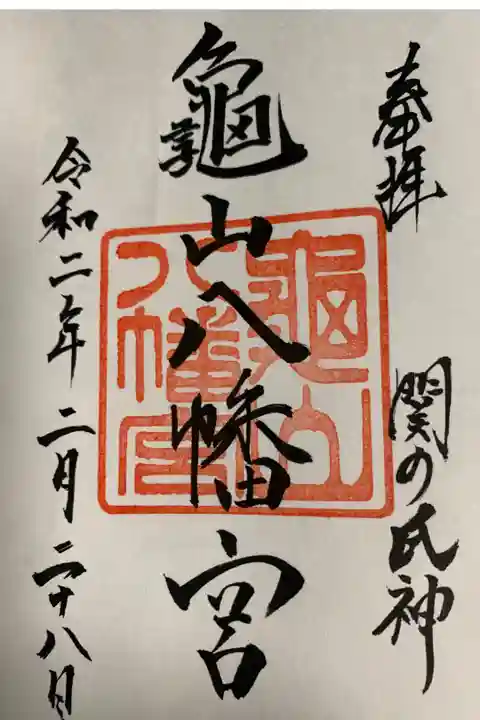 奉拝
関の氏神
龜山八幡宮
龜山八幡宮
令和二年二月二十八日